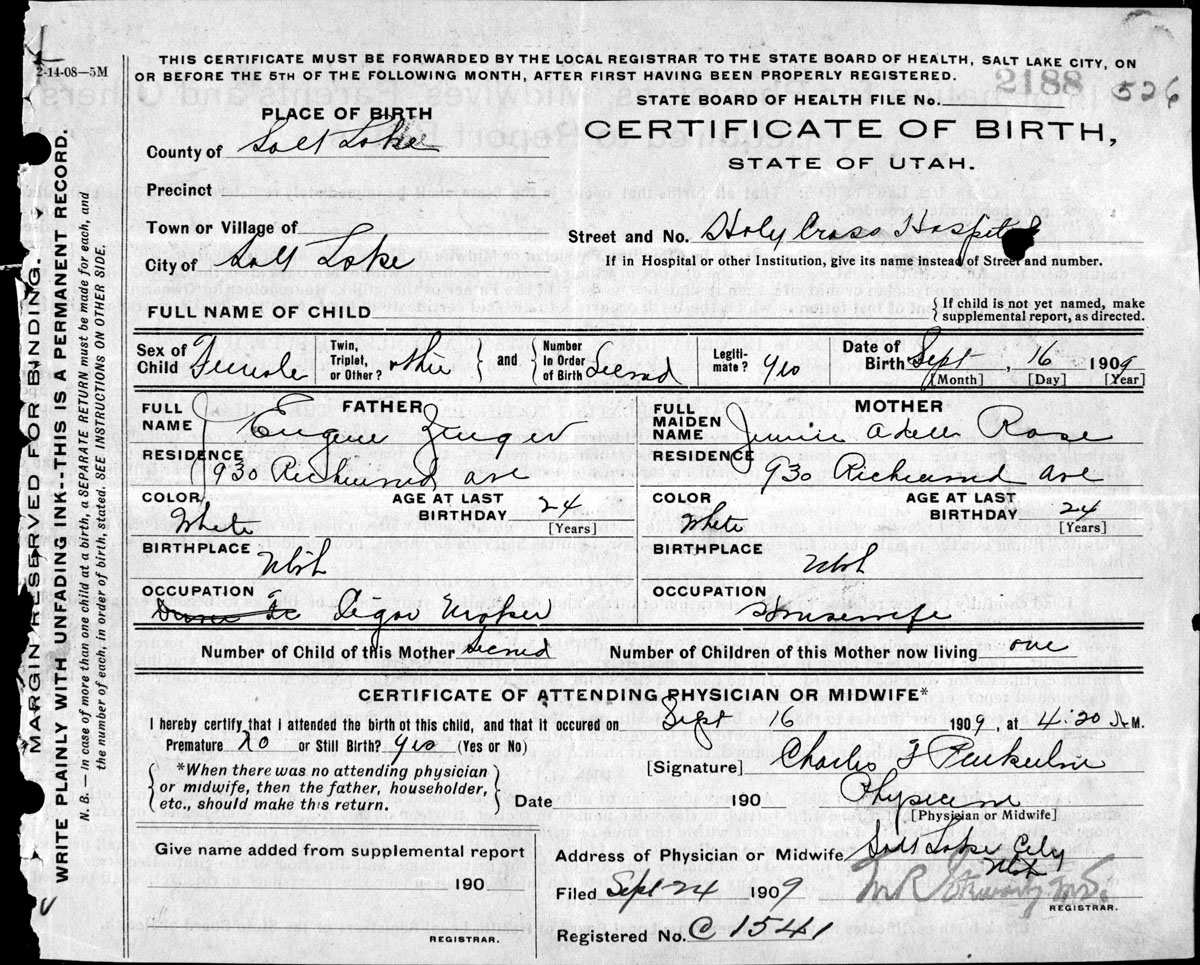 2-14-08—5M
THIS CERTIFICATE MUST BE FORWARDED BY THE LOCAL REGISTRAR TO THE STATE BOARD OF HEALTH, SALT LAKE CITY, ON
OR BEFORE THE 5TH OF THE FOLLOWING MONTH, AFTER FIRST HAVING BEEN PROPERLY REGISTERED.
STATE BOARD OF HEALTH FILE No. 2188 526
PLACE OF BIRTH
CERTIFICATE OF BIRTH,
STATE OF UTAH.
County of Salt Lake
Precinct
Town or Village of
City of Salt Lake
Street and No. Holy Cross Hospital
If in Hospital or other Institution, give its name instead of Street and number.
FULL NAME OF CHILD
If child is not yet named, make
supplemental report, as directed.
Sex of Child Female
Twin, Triplet, or Other?
and
Number in Order of Birth Second
Legitimate? Yes
Date of Birth Sept, 16 1909
[Month] [Day] [Year]
FATHER
FULL NAME Eugene
RESIDENCE 930 Richmond Ave
COLOR White
AGE AT LAST BIRTHDAY 24
[Years]
BIRTHPLACE Utah
OCCUPATION Cigar Maker
MOTHER
FULL MAIDEN NAME Jennie Adell Rose
RESIDENCE 930 Richmond Ave
COLOR White
AGE AT LAST BIRTHDAY 24
[Years]
BIRTHPLACE Utah
OCCUPATION Housewife
Number of Child of this Mother Second
Number of Children of this Mother now living one
CERTIFICATE OF ATTENDING PHYSICIAN OR MIDWIFE*
I hereby certify that I attended the birth of this child, and that it occured on Sept 16 1909, at 4:20 M.
Premature No or Still Birth? Yes (Yes or No)
*When there was no attending physician
or midwife, then the father, householder,
etc., should make this return.
[Signature] Charles F
Date 190
Physician
[Physician or Midwife]
Give name added from supplemental report
190
REGISTRAR.
Address of Physician or Midwife Salt Lake City
Utah
Filed Sept 24 1909
M.D.
REGISTRAR.
Registered No. C 1541
MARGIN RESERVED FOR BINDING.
WRITE PLAINLY WITH UNFADING INK---THIS IS A PERMANENT RECORD.
N. B.—In case of more than one child at a birth, a SEPARATE RETURN must be made for each, and
the number of each, in order of birth, stated. SEE INSTRUCTIONS ON OTHER SIDE.